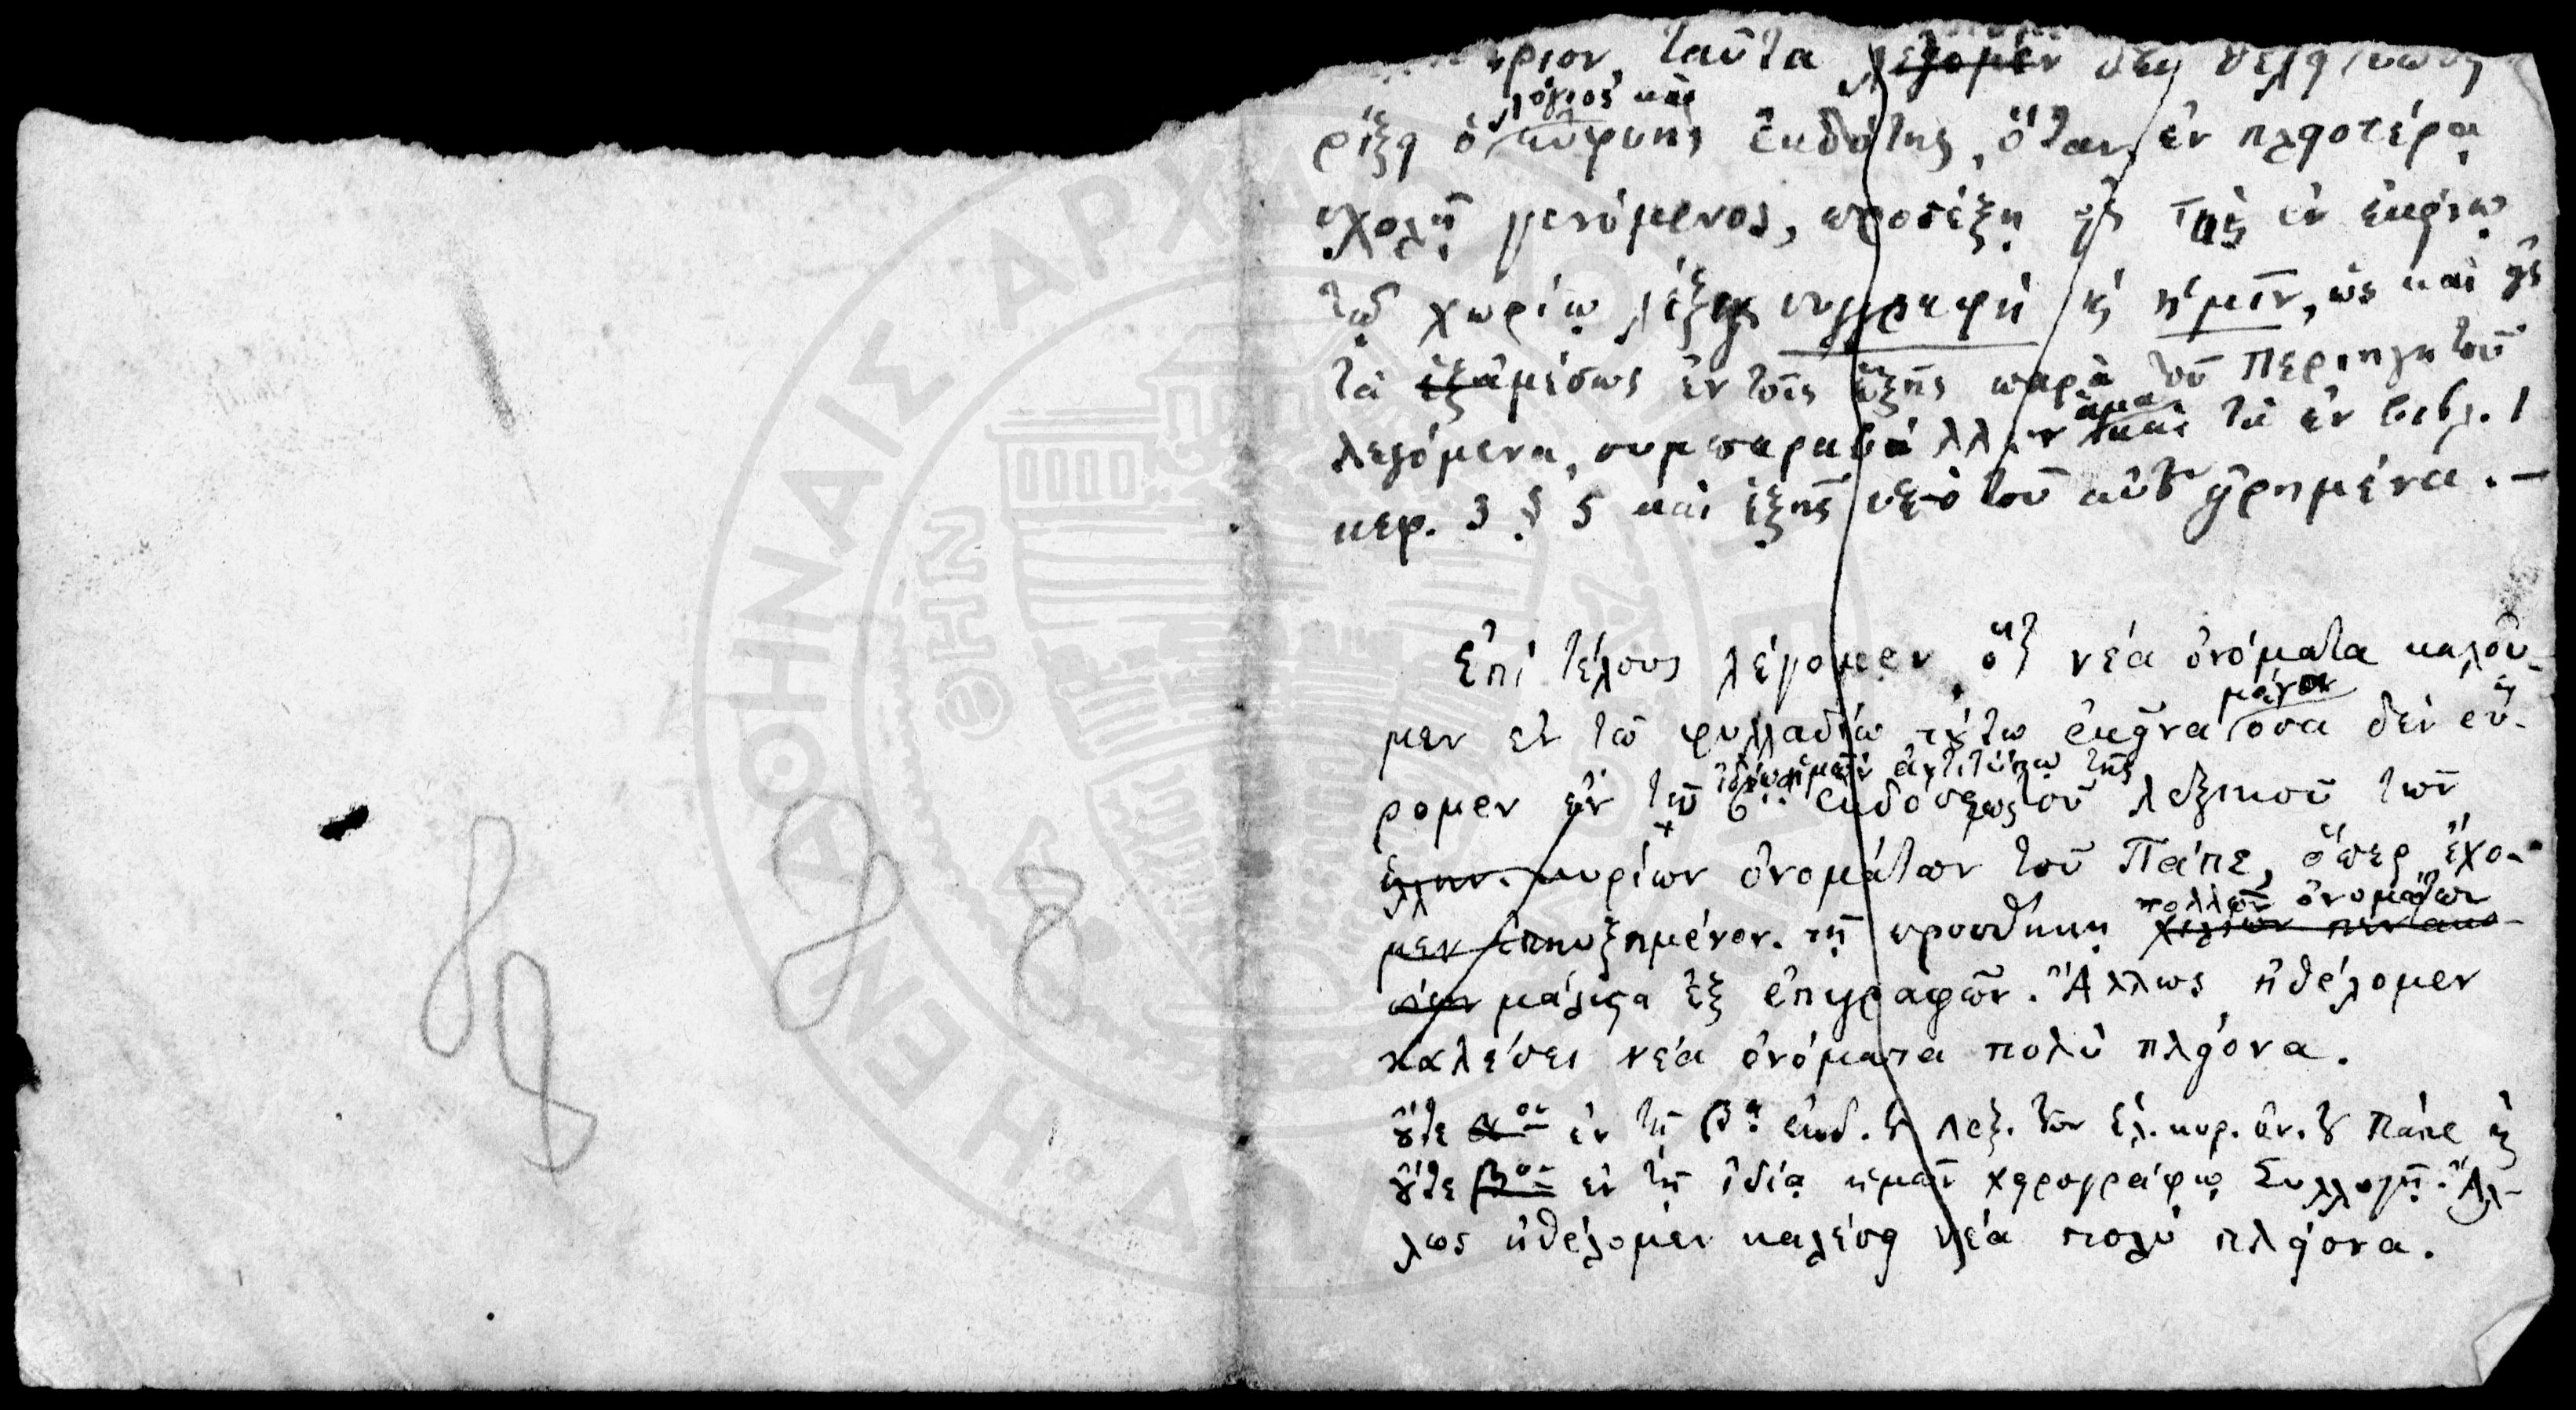 ταῦτα λέγομεν
λόγιος καὶ
ὁ εὐφυὴς ἐκδότης, ὅταν ἐν πλειοτέρᾳ
σχολῇ γενόμενος, προσέξῃ εἰς τὰς ἐν ἐκείνῳ
τῷ χωρίῳ λέξεις συγγραφῇ ἢ ἡμῖν, ὡς καὶ εἰς
τὰ ἀμέσως ἐν τοῖς ἑξῆς παρὰ τοῦ Περιηγητοῦ
λεγόμενα, συμπαραβάλλων ἅμα τὰ ἐν βιβλ. 1
κεφ. 3 § 5 καὶ ἑξῆς ὑπὸ τοῦ αὐτοῦ εἰρημένα. —
Ἐπὶ τέλους λέγομεν, ὅτι νέα ὀνόματα καλοῦ-
μεν ἐν τῷ φυλλαδίῳ τούτῳ ἐκεῖνα μόνον ὅσα δὲν εὕ-
ρομεν ἐν τῷ ἡμῶν ἀντιτύπῳ τῆς
ἐκδόσεως τοῦ λεξικοῦ τῶν
ἑλλην. κυρίων ὀνομάτων τοῦ Πάπε, ὅπερ ἔχο-
μεν ἐπηυξημένον τῇ προσθήκῃ πολλῶν ὀνομάτων
χιλίων πεντακο-
σίων μάλιστα ἐξ ἐπιγραφῶν. Ἄλλως ἠθέλομεν
καλέσει νέα ὀνόματα πολὺ πλείονα.
οὔτε αον ἐν τῇ βᾳ ἐκδ. τοῦ Λεξ. τῶν Ἑλ. κυρ. ὀν. τοῦ Πάπε ἢ
οὔτε βον ἐν τῇ ἰδίᾳ ἡμῶν χειρογράφῳ Συλλογῇ. Ἄλ-
λως ἠθέλομεν καλέσει νέα πολὺ πλείονα.
ΑΘΗΝΑΙΣ ΑΡΧΑΙΟΛΟΓΙΚΗ